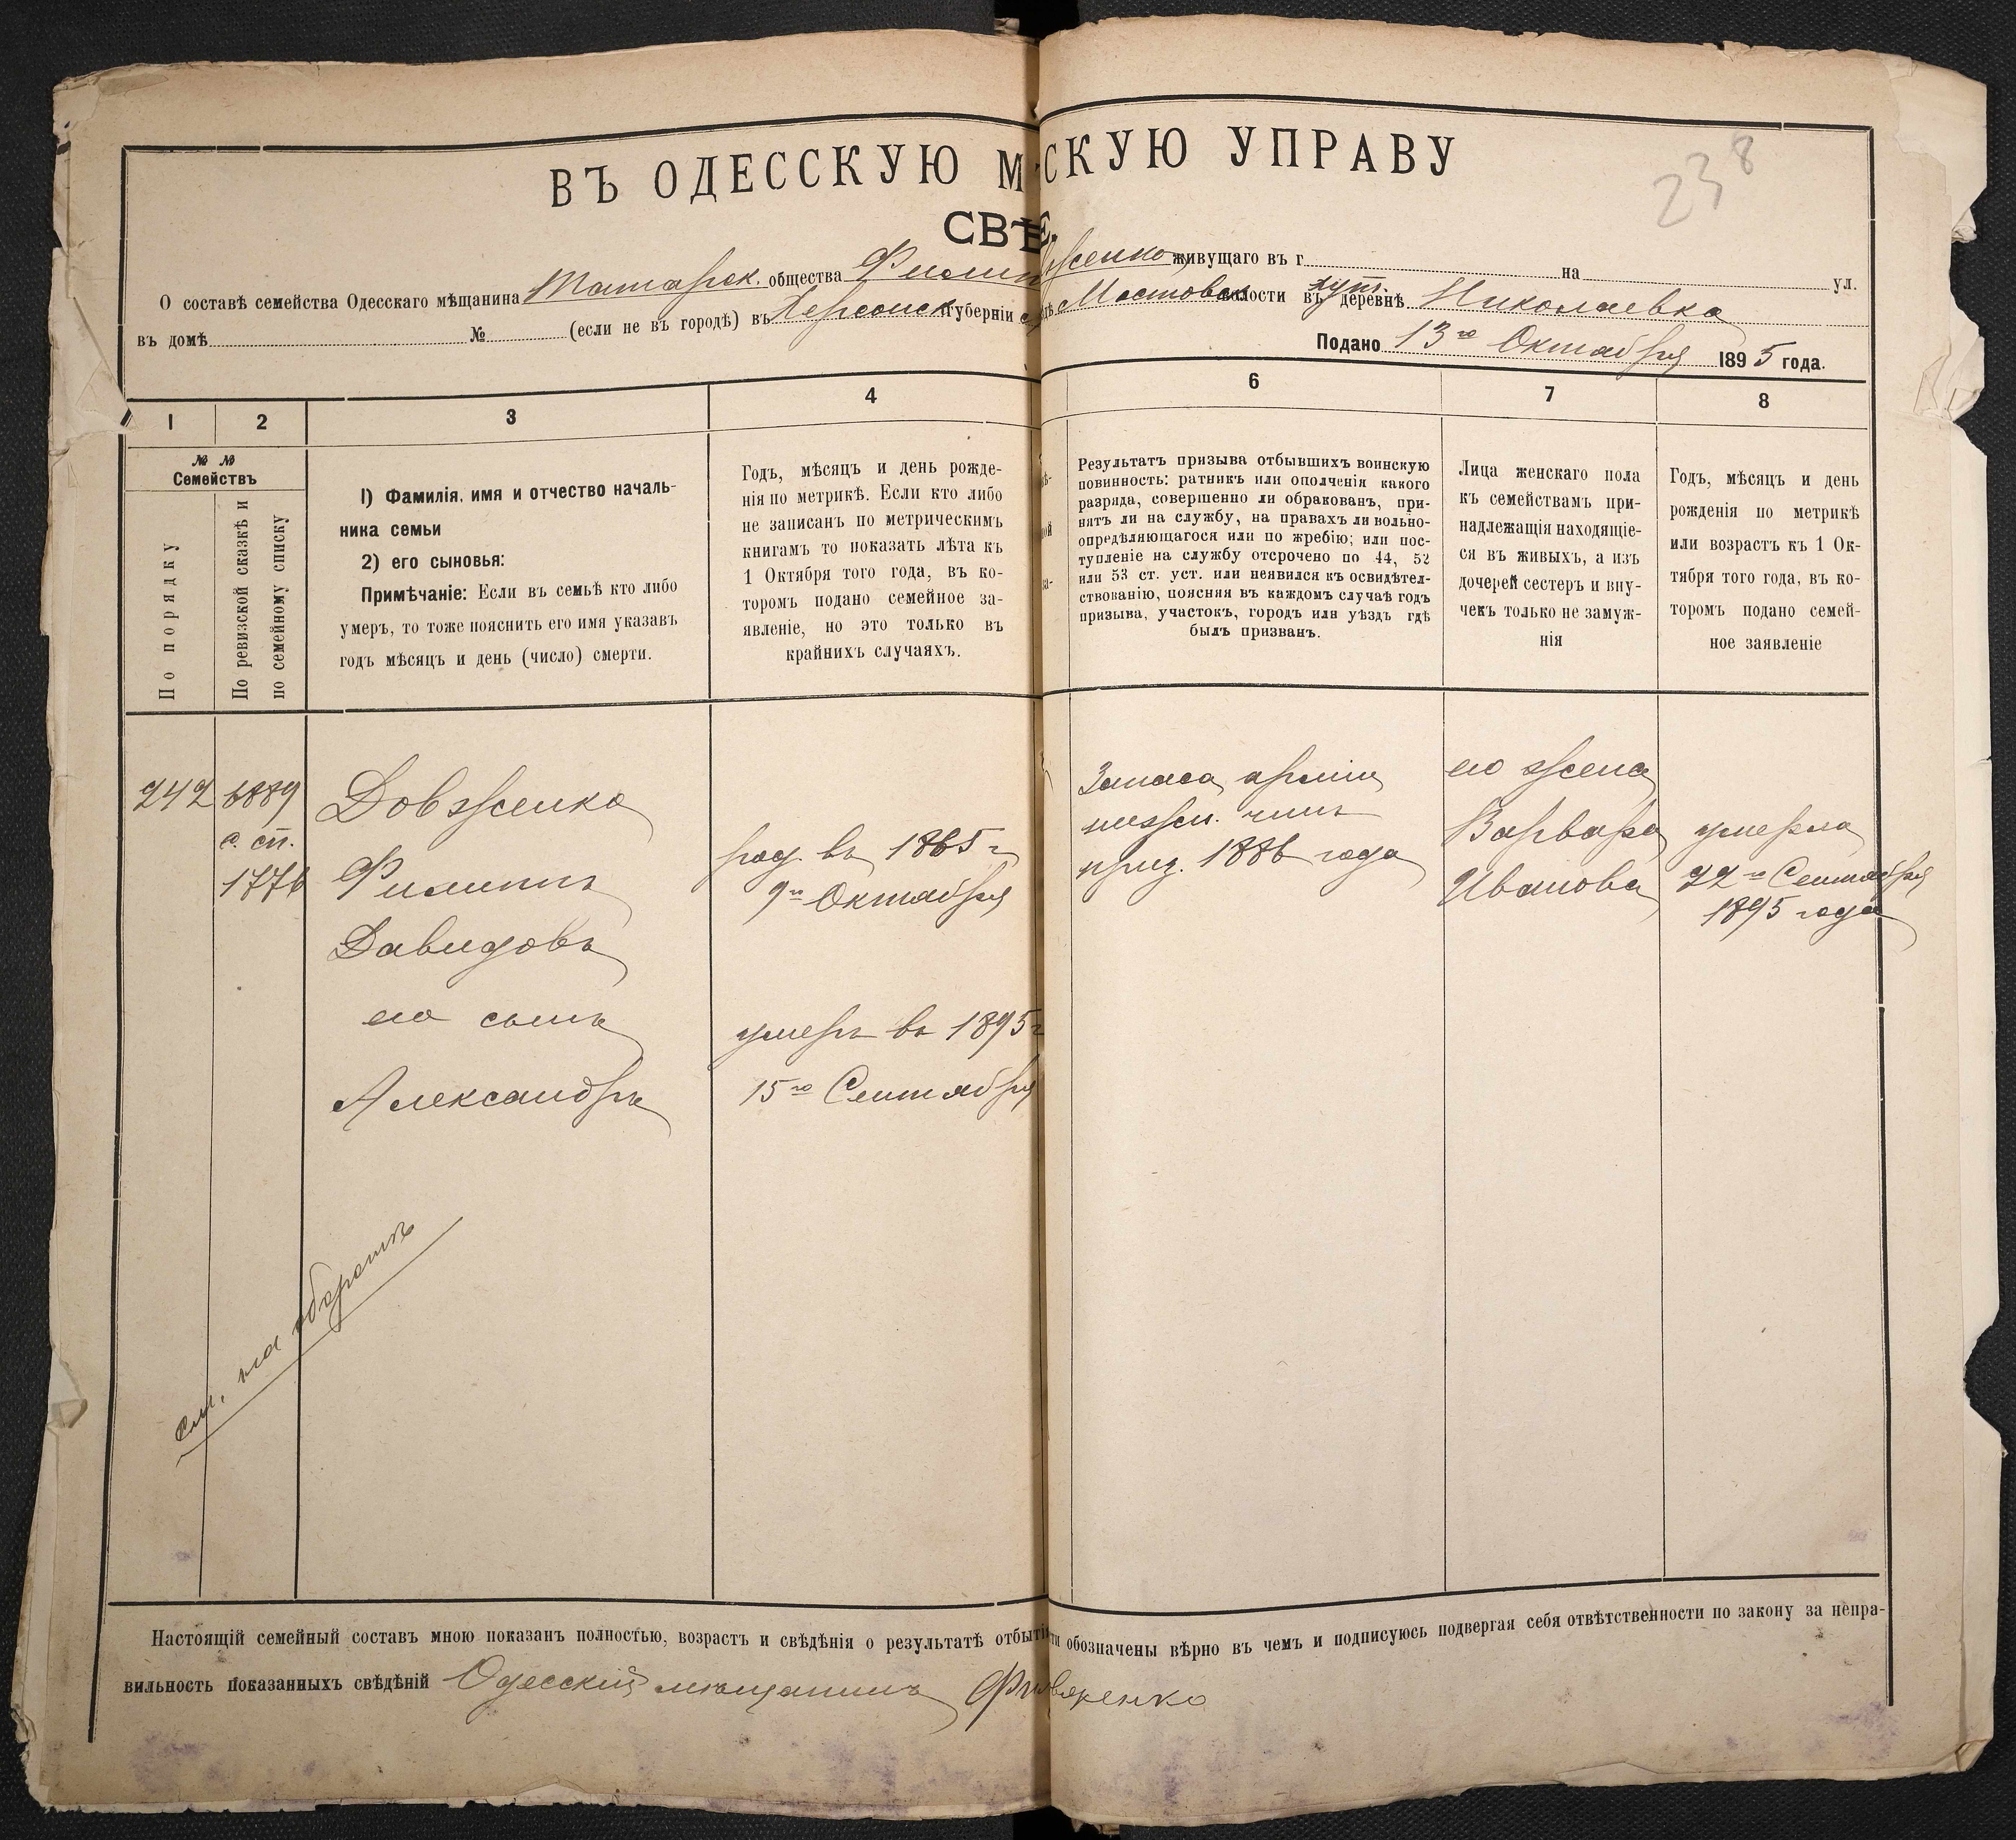 238
ВЪ ОДЕССКУЮ М СКУЮ УПРАВУ
СВѢ
О составѣ семейства Одесскаго мѣщанина Татарск. общества Филип женко живущаго въ г на ул.
въ домѣ № (если не въ городѣ) въ Херсонск губерніи Мостовск волости въ хут. деревнѣ Николаевка
Подано 13го Октября 1895 года.
1 2 3 4 6 7 8
№ № Семействъ
По порядку
По ревизской сказкѣ и по семейному списку
1) Фамилія, имя и отчество началь-
ника семьи
2) его сыновья:
Примѣчаніе: Если въ семьѣ кто либо
умеръ, то тоже пояснить его имя указавъ
годъ мѣсяцъ и день (число) смерти.
Годъ, мѣсяцъ и день рожде-
нія по метрикѣ. Если кто либо
не записанъ по метрическимъ
книгамъ то показать лѣта къ
1 Октября того года, въ ко-
торомъ подано семейное за-
явленіе, но это только въ
крайнихъ случаяхъ.
Результатъ призыва отбывшихъ воинскую
повинность: ратникъ или ополченія какого
разряда, совершенно ли обракованъ, при-
нятъ ли на службу, на правахъ ли вольно-
опредѣляющагося или по жребію; или пос-
тупленіе на службу отсрочено по 44, 52
или 53 ст. уст. или неявился къ освидѣтел-
ствованію, поясняя въ каждомъ случаѣ годъ
призыва, участокъ, городъ или уѣздъ гдѣ
былъ призванъ.
Лица женскаго пола
къ семействамъ при-
надлежащія находящіе-
ся въ живыхъ, а изъ
дочерей сестеръ и вну-
чекъ только не замуж-
нія
Годъ, мѣсяцъ и день
рожденія по метрикѣ
или возрастъ къ 1 Ок-
тября того года, въ ко-
торомъ подано семей-
ное заявленіе
242
6889
с. сп.
1776
Довженко
Филиппъ
Давидовъ
его сынъ
Александръ
род. въ 1865 г
9го Октября
умеръ въ 1895 г
15го Сентября
Запаса арміи
нижн. чинъ
приз. 1886 года
его жена
Варвара
Иванова
умерла
22го Сентября
1895 года
см. на оборотѣ
Настоящій семейный составъ мною показанъ полностью, возрастъ и свѣдѣнія о результатѣ отбытія ти обозначены вѣрно въ чемъ и подписуюсь подвергая себя отвѣтственности по закону за непра-
вильность показанныхъ свѣдѣній Одесскій мѣщанинъ Фи вженко